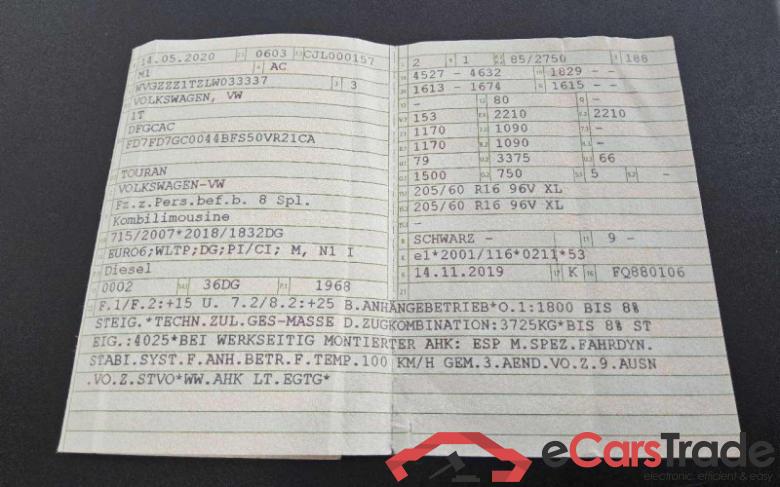 14.05.2020 0603 CJL000157
M1 AC
WVGZZZ1TZLW033337 3
VOLKSWAGEN, VW
1T
DFGCAC
FD7FD7GC0044BFS50VR21CA
TOURAN
VOLKSWAGEN-VW
Fz.z.Pers.bef.b. 8 Spl.
Kombilimousine
715/2007*2018/1832DG
EURO6;WLTP;DG;PI/CI; M, N1 I
Diesel
0002 36DG 1968
2 1 85/2750 188
4527 - 4632 1829 - -
1613 - 1674 1615 - -
- 80 -
153 2210 2210
1170 1090 -
1170 1090 -
79 3375 66
1500 750 5 -
205/60 R16 96V XL
205/60 R16 96V XL
-
SCHWARZ - 9 -
e1*2001/116*0211*53
14.11.2019 K FQ880106
F.1/F.2:+15 U. 7.2/8.2:+25 B.ANHÄNGEBETRIEB*O.1:1800 BIS 8%
STEIG.*TECHN.ZUL.GES-MASSE D.ZUGKOMBINATION:3725KG*BIS 8% ST
EIG.:4025*BEI WERKSEITIG MONTIERTER AHK: ESP M.SPEZ.FAHRDYN.
STABI.SYST.F.ANH.BETR.F.TEMP.100 KM/H GEM.3.AEND.VO.Z.9.AUSN
.VO.Z.STVO*WW.AHK LT.EGTG*
eCarsTrade
electronic, efficient & easy